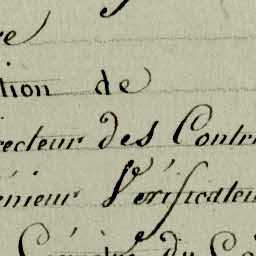 re
tion de
recteur des Contri
énieur Vérificateur
du Ca